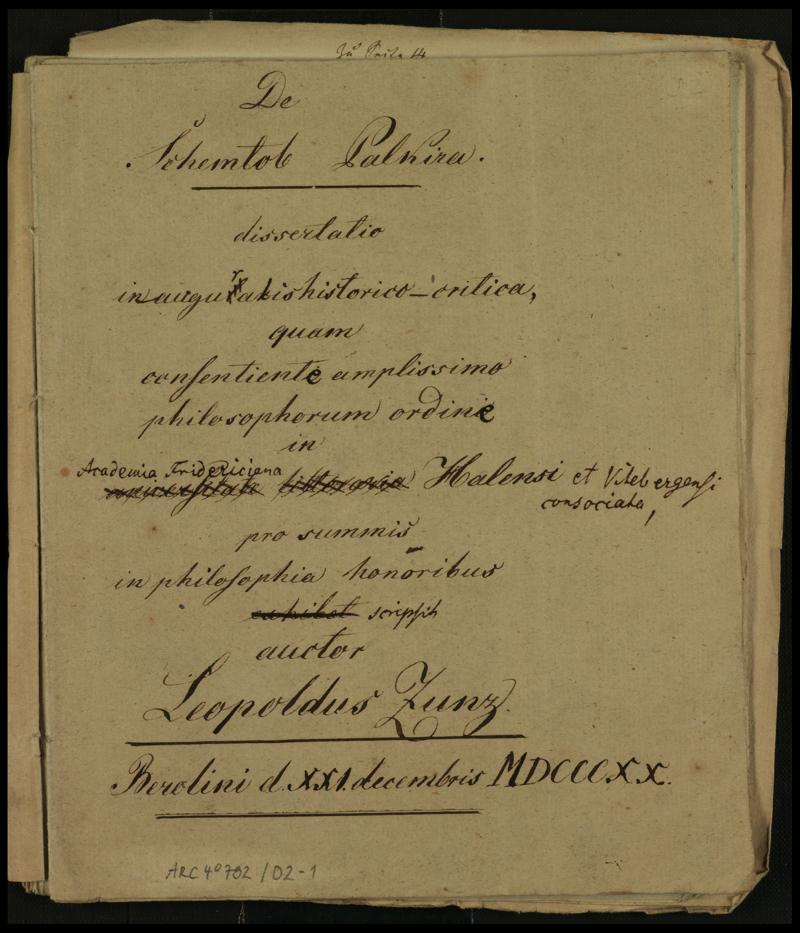 Zu Seite 14
De
Schemtob Palkira.
dissertatio
inauguralis historico-critica,
quam
consentiente amplissimo
philosophorum ordine
in
Academia Fridericiana
universitate litteraria Halensi et Vitebergensi
consociata,
pro summis
in philosophia honoribus
exhibet scripsit
auctor
Leopoldus Zunz.
Berolini d. XXI. decembris MDCCCXX.
ARC 4° 792 / D2-1